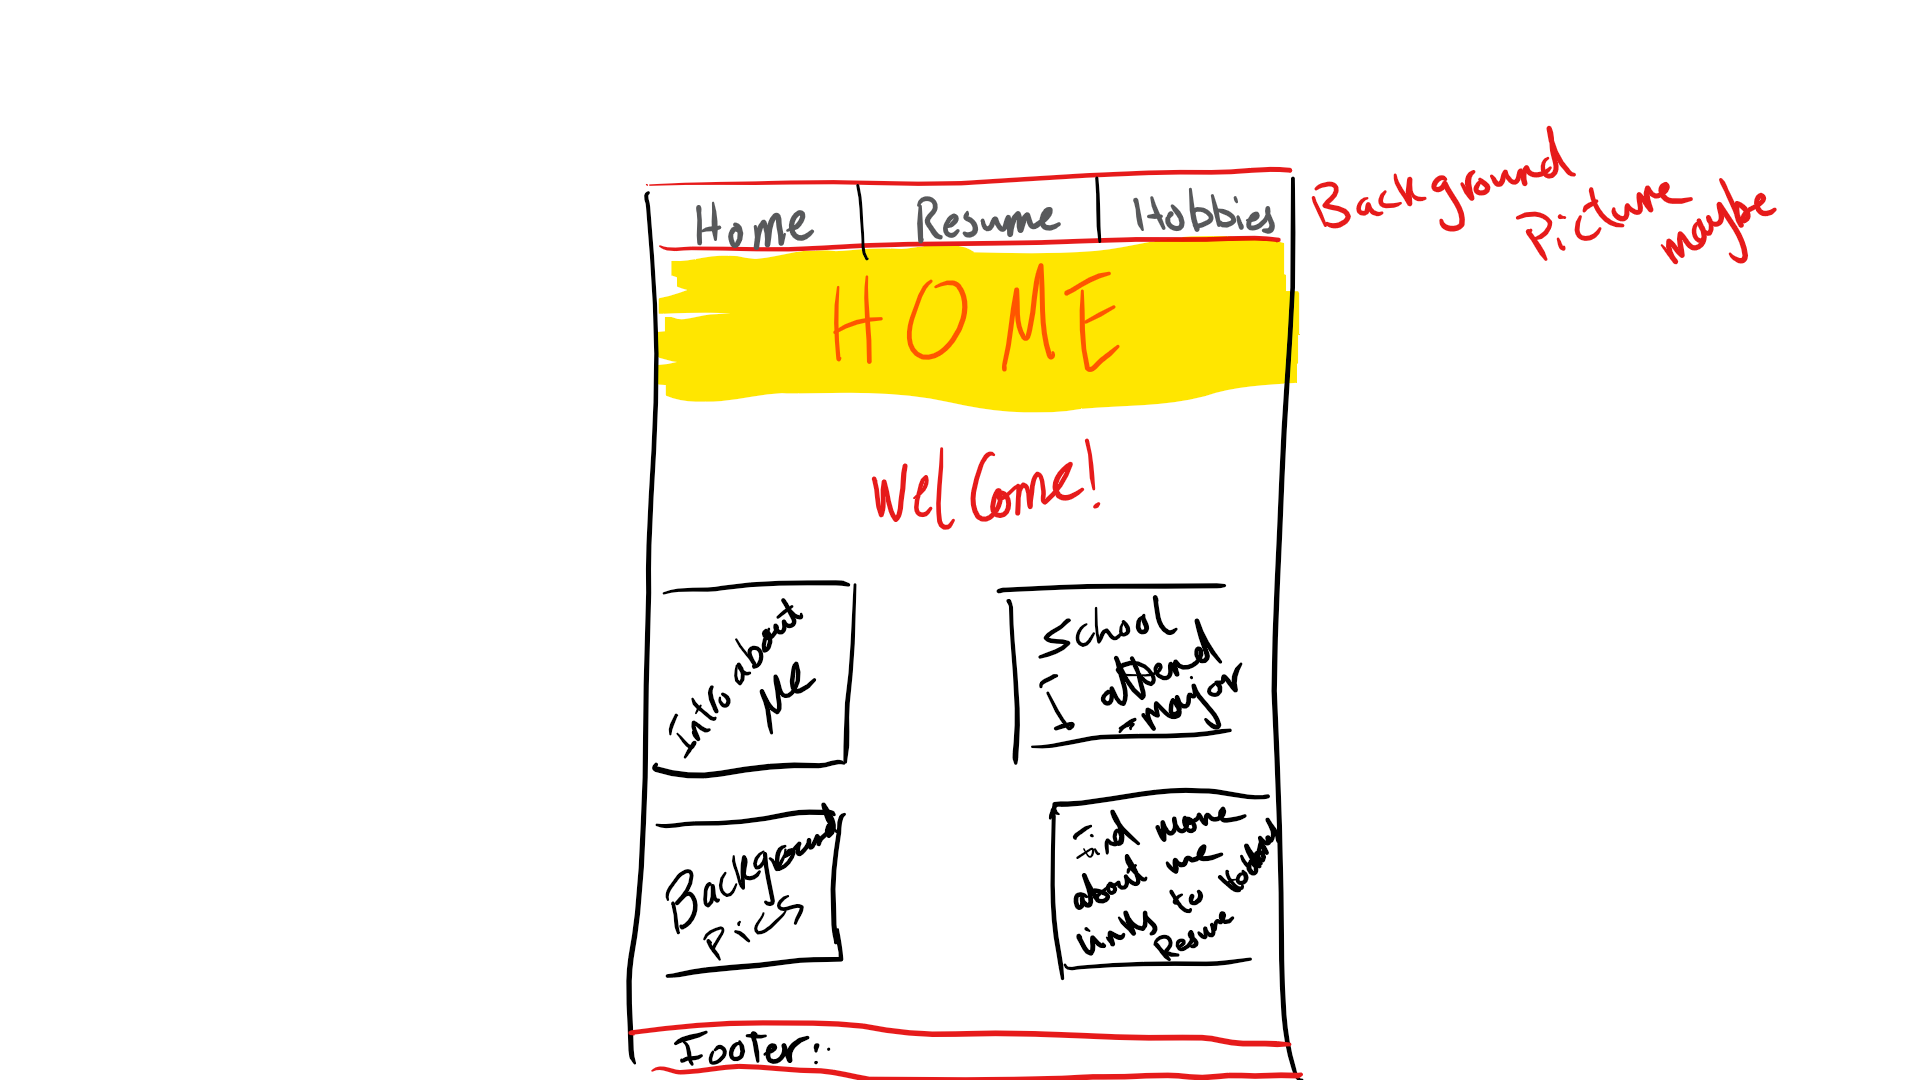 Home Resume Hobbies
Background
Picture
maybe
HOME
Welcome!
Intro about
Me
School
I attend
- major
Background
Pics
Find more
about me
Links to
Resume
Footer: